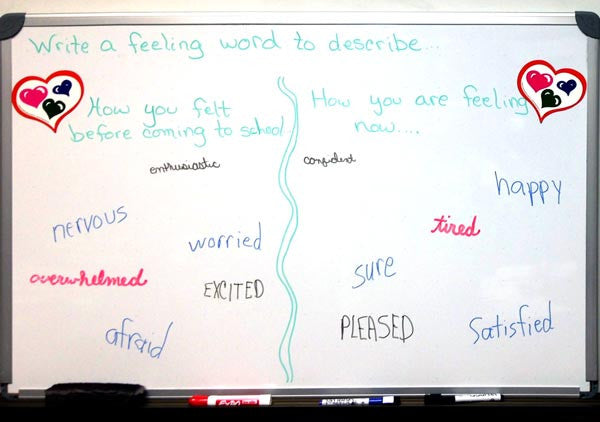 Write a feeling word to describe...
How you felt
before coming to school
enthusiastic
nervous
worried
overwhelmed
EXCITED
afraid
How you are feeling
now....
confident
happy
tired
sure
PLEASED
Satisfied